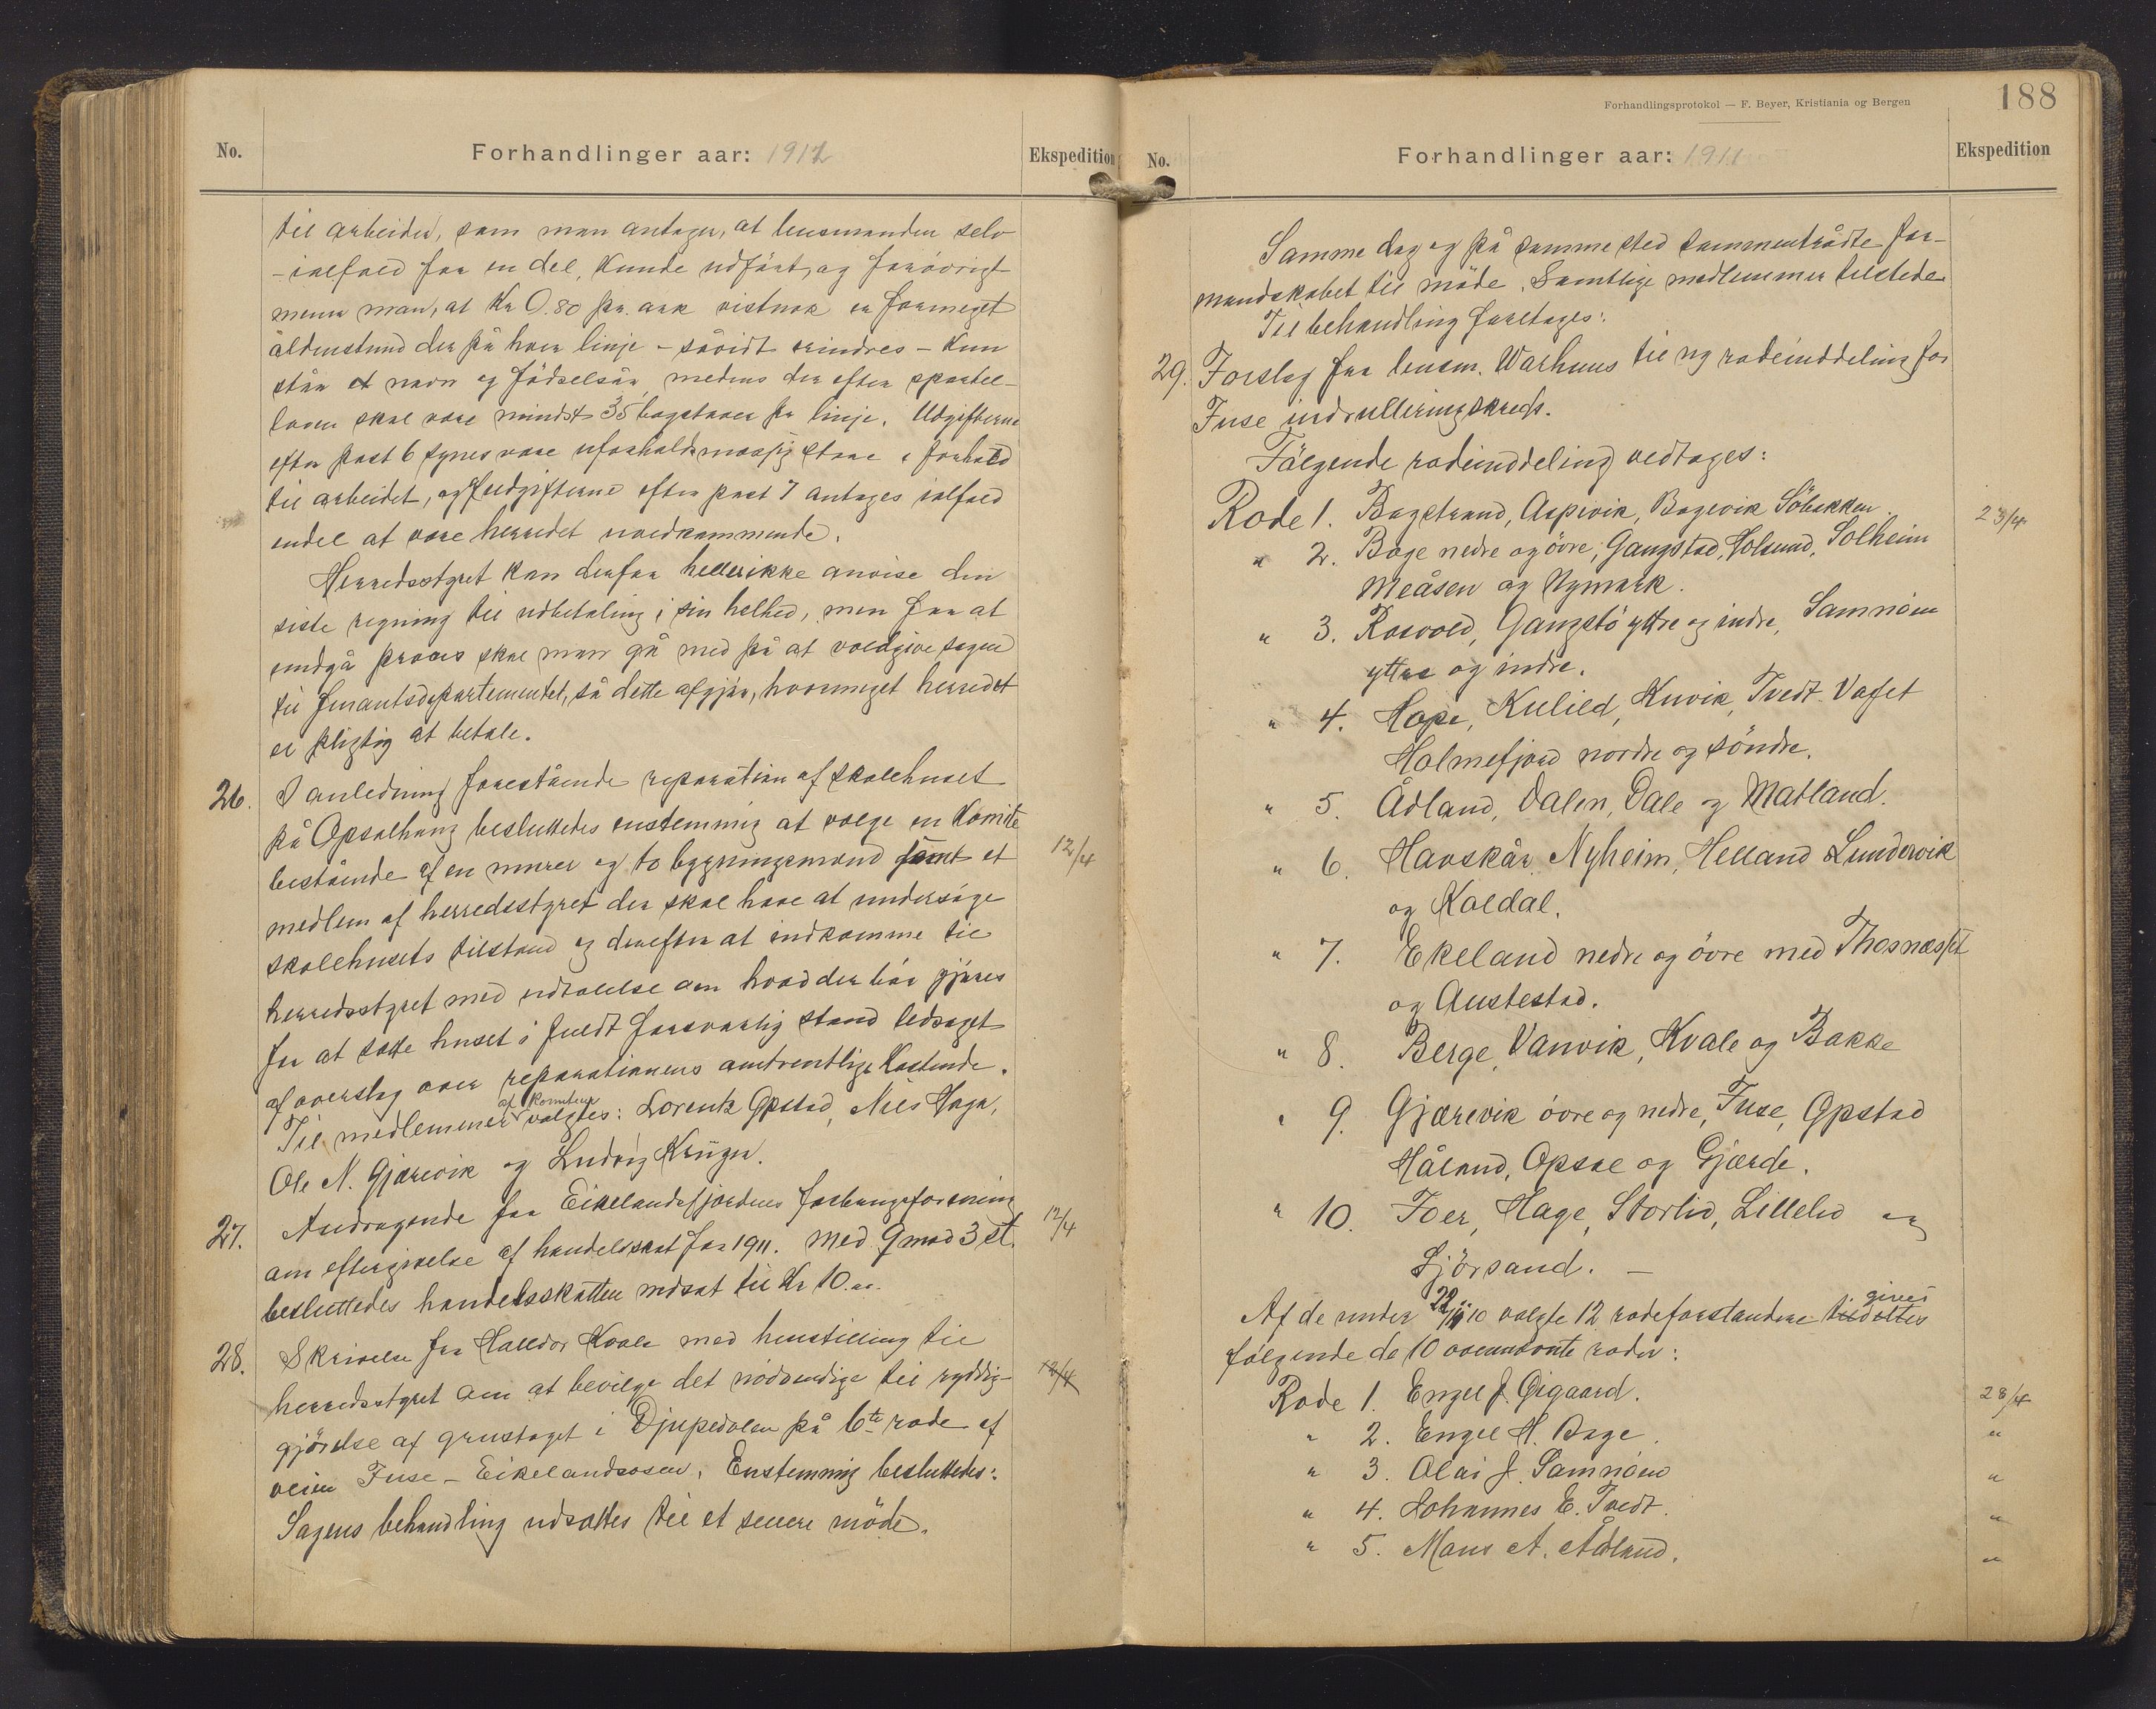 No.
Forhandlinger aar: 1912
Ekspedition
til arbeider, som man antager, at lensmanden selv
- ialfald for en del, kunde udført, og forøvrigt
mener man, at Kr 0.80 pr. ark vistnok er formeget
aldenstund der på hver linje - såvidt erindres - kun
står et navn og fødselsår, medens der efter sportel-
loven skal være mindst 35 bogstaver pr linje. Udgifterne
efter post 6 synes være uforholdsmæssig store i forhold
til arbeidet, og udgifterne efter post 7 antages ialfald
endel at være herredet uvedkommende.
Herredsstyret kan derfor heller ikke anvise den
siste regning til udbetaling i sin helhed, men for at
undgå proces skal man gå med på at voldgive sagen
til finantsdepartementet, så dette afgjør, hvormeget herredet
er pligtig at betale.
26. I anledning forestående reparation af skolehuset
på Opsalhaug besluttedes enstemmig at vælge en komite
bestående af en murer og to bygningsmænd samt et
12/4
medlem af herredsstyret der skal have at undersøge
skolehusets tilstand og derefter at indkomme til
herredsstyret med udtalelse om hvad der bør gjøres
for at sætte huset i fuldt forsvarlig stand ledsaget
af overslag over reparationens omtrentlige kostende.
Til medlemmer af komiteen valgtes: Lorentz Gpstad, Nils Haga,
Ole N. Gjærevik og Ludvig Krüger.
27. Andragende fra Eikelandsfjordens forbrugsforening
12/4
om eftergivelse af handelsskat for 1911. Med 9 mod 3 st.
besluttedes handelsskatten nedsat til Kr 10.00.
28. Skrivelse fra Halldor Kvale med henstilling til
herredsstyret om at bevilge det nødvendige til ryddig-
12/4
gjørelse af grustaget i Djupedalen på 6te rode af
veien Fuse - Eikelandsosen. Enstemmig besluttedes:
Sagens behandling udsættes til et senere møde.
Forhandlingsprotokol — F. Beyer, Kristiania og Bergen
188
No.
Forhandlinger aar: 1911
Ekspedition
Samme dag og på samme sted sammentrådte for-
mandskabet til møde. Samtlige medlemmer tilstede
Til behandling foretages:
29. Forslag fra lensm. Warhuus til ny rodeinddeling for
Fuse indrulleringskreds.
Følgende rodeinddeling vedtages:
Rode 1. Bagstrand, Aspevik, Bagevik Söbakken.
23/4
" 2. Bage nedre og övre, Gangstad, Holsund, Solheim
Meåsen og Nymark.
" 3. Rosvold, Gangstö yttre og indre, Samnöen
yttre og indre.
" 4. Hope, Kulild, Kuvik, Tvedt Vaget
Holmefjord nordre og söndre.
" 5. Ådland, Dalen, Dale og Matland.
" 6. Havskår, Nyheim, Helland Lundervik
og Koldal.
" 7. Ekeland nedre og övre med Thosnæsset
og Austestad.
" 8. Berge, Vanvik, Kvale og Bakke
" 9. Gjærevik övre og nedre, Fuse, Gpstad
Håland, Opsal og Gjærde.
" 10. Joer, Hage, Storlid, Lillelid og
Sjörsand. —
Af de under valgte 12 rodeforstandere gives
følgende de 10 ovennævnte roder:
Rode 1. Engel J. Øigaard.
28/4
" 2. Engel H. Bage.
"
" 3. Olai J. Samnöen
"
" 4. Johannes E. Tvedt.
"
" 5. Mons A. Ådland.
"